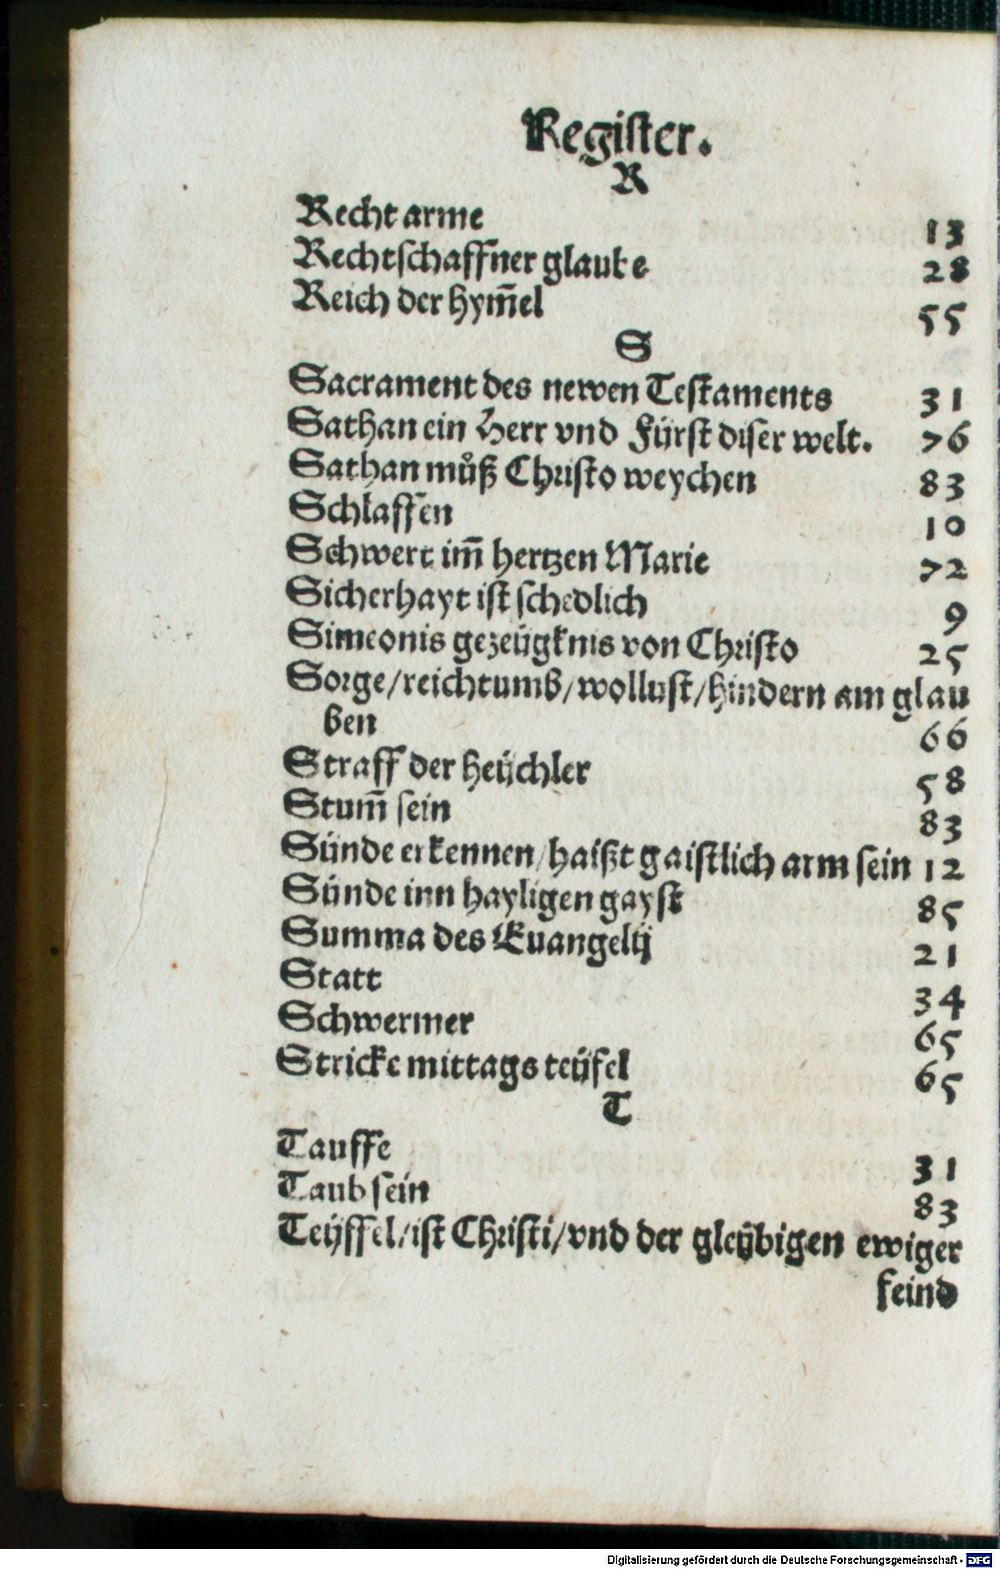 Register.
R
Recht arme 13
Rechtschaffner glaube 28
Reich der hym̄el 55
S
Sacrament des newen Testaments 31
Sathan ein Herr vnd Fürst diser welt. 76
Sathan můß Christo weychen 83
Schlaffen 10
Schwert im̄ hertzen Marie 72
Sicherhayt ist schedlich 9
Simeonis gezeügknis von Christo 25
Sorge/reichtumb/wollust/hindern am glau
ben 66
Straff der heüchler 58
Stum̄ sein 83
Sünde erkennen/haißt gaistlich arm sein 12
Sünde inn hayligen gayst 85
Summa des Euangelij 21
Statt 34
Schwermer 65
Stricke mittags teüfel 65
T
Tauffe 31
Taub sein 83
Teüffel/ist Christi/vnd der gleübigen ewiger
feind
Digitalisierung gefördert durch die Deutsche Forschungsgemeinschaft - DFG